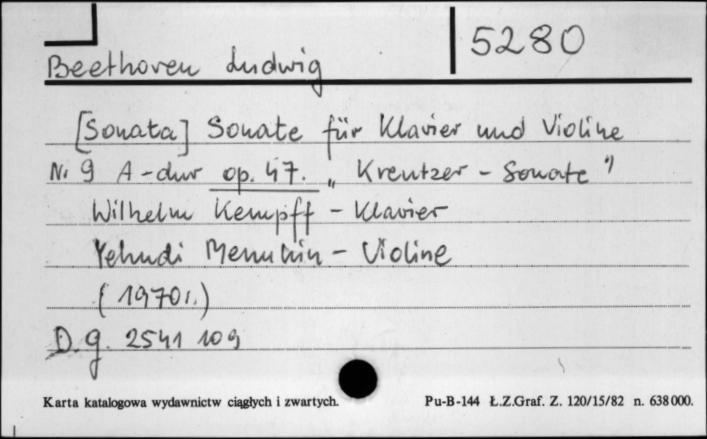 5280
Beethoven Ludwig
[Sonata] Sonate für Klavier und Violine
Nr 9 A-dur op. 47. „Kreutzer-Sonate"
Wilhelm Kempff - Klavier
Yehudi Menuhin - Violine
(1970r.)
D.g. 2541 109
Karta katalogowa wydawnictw ciągłych i zwartych. Pu-B-144 Ł.Z.Graf. Z. 120/15/82 n. 638000.